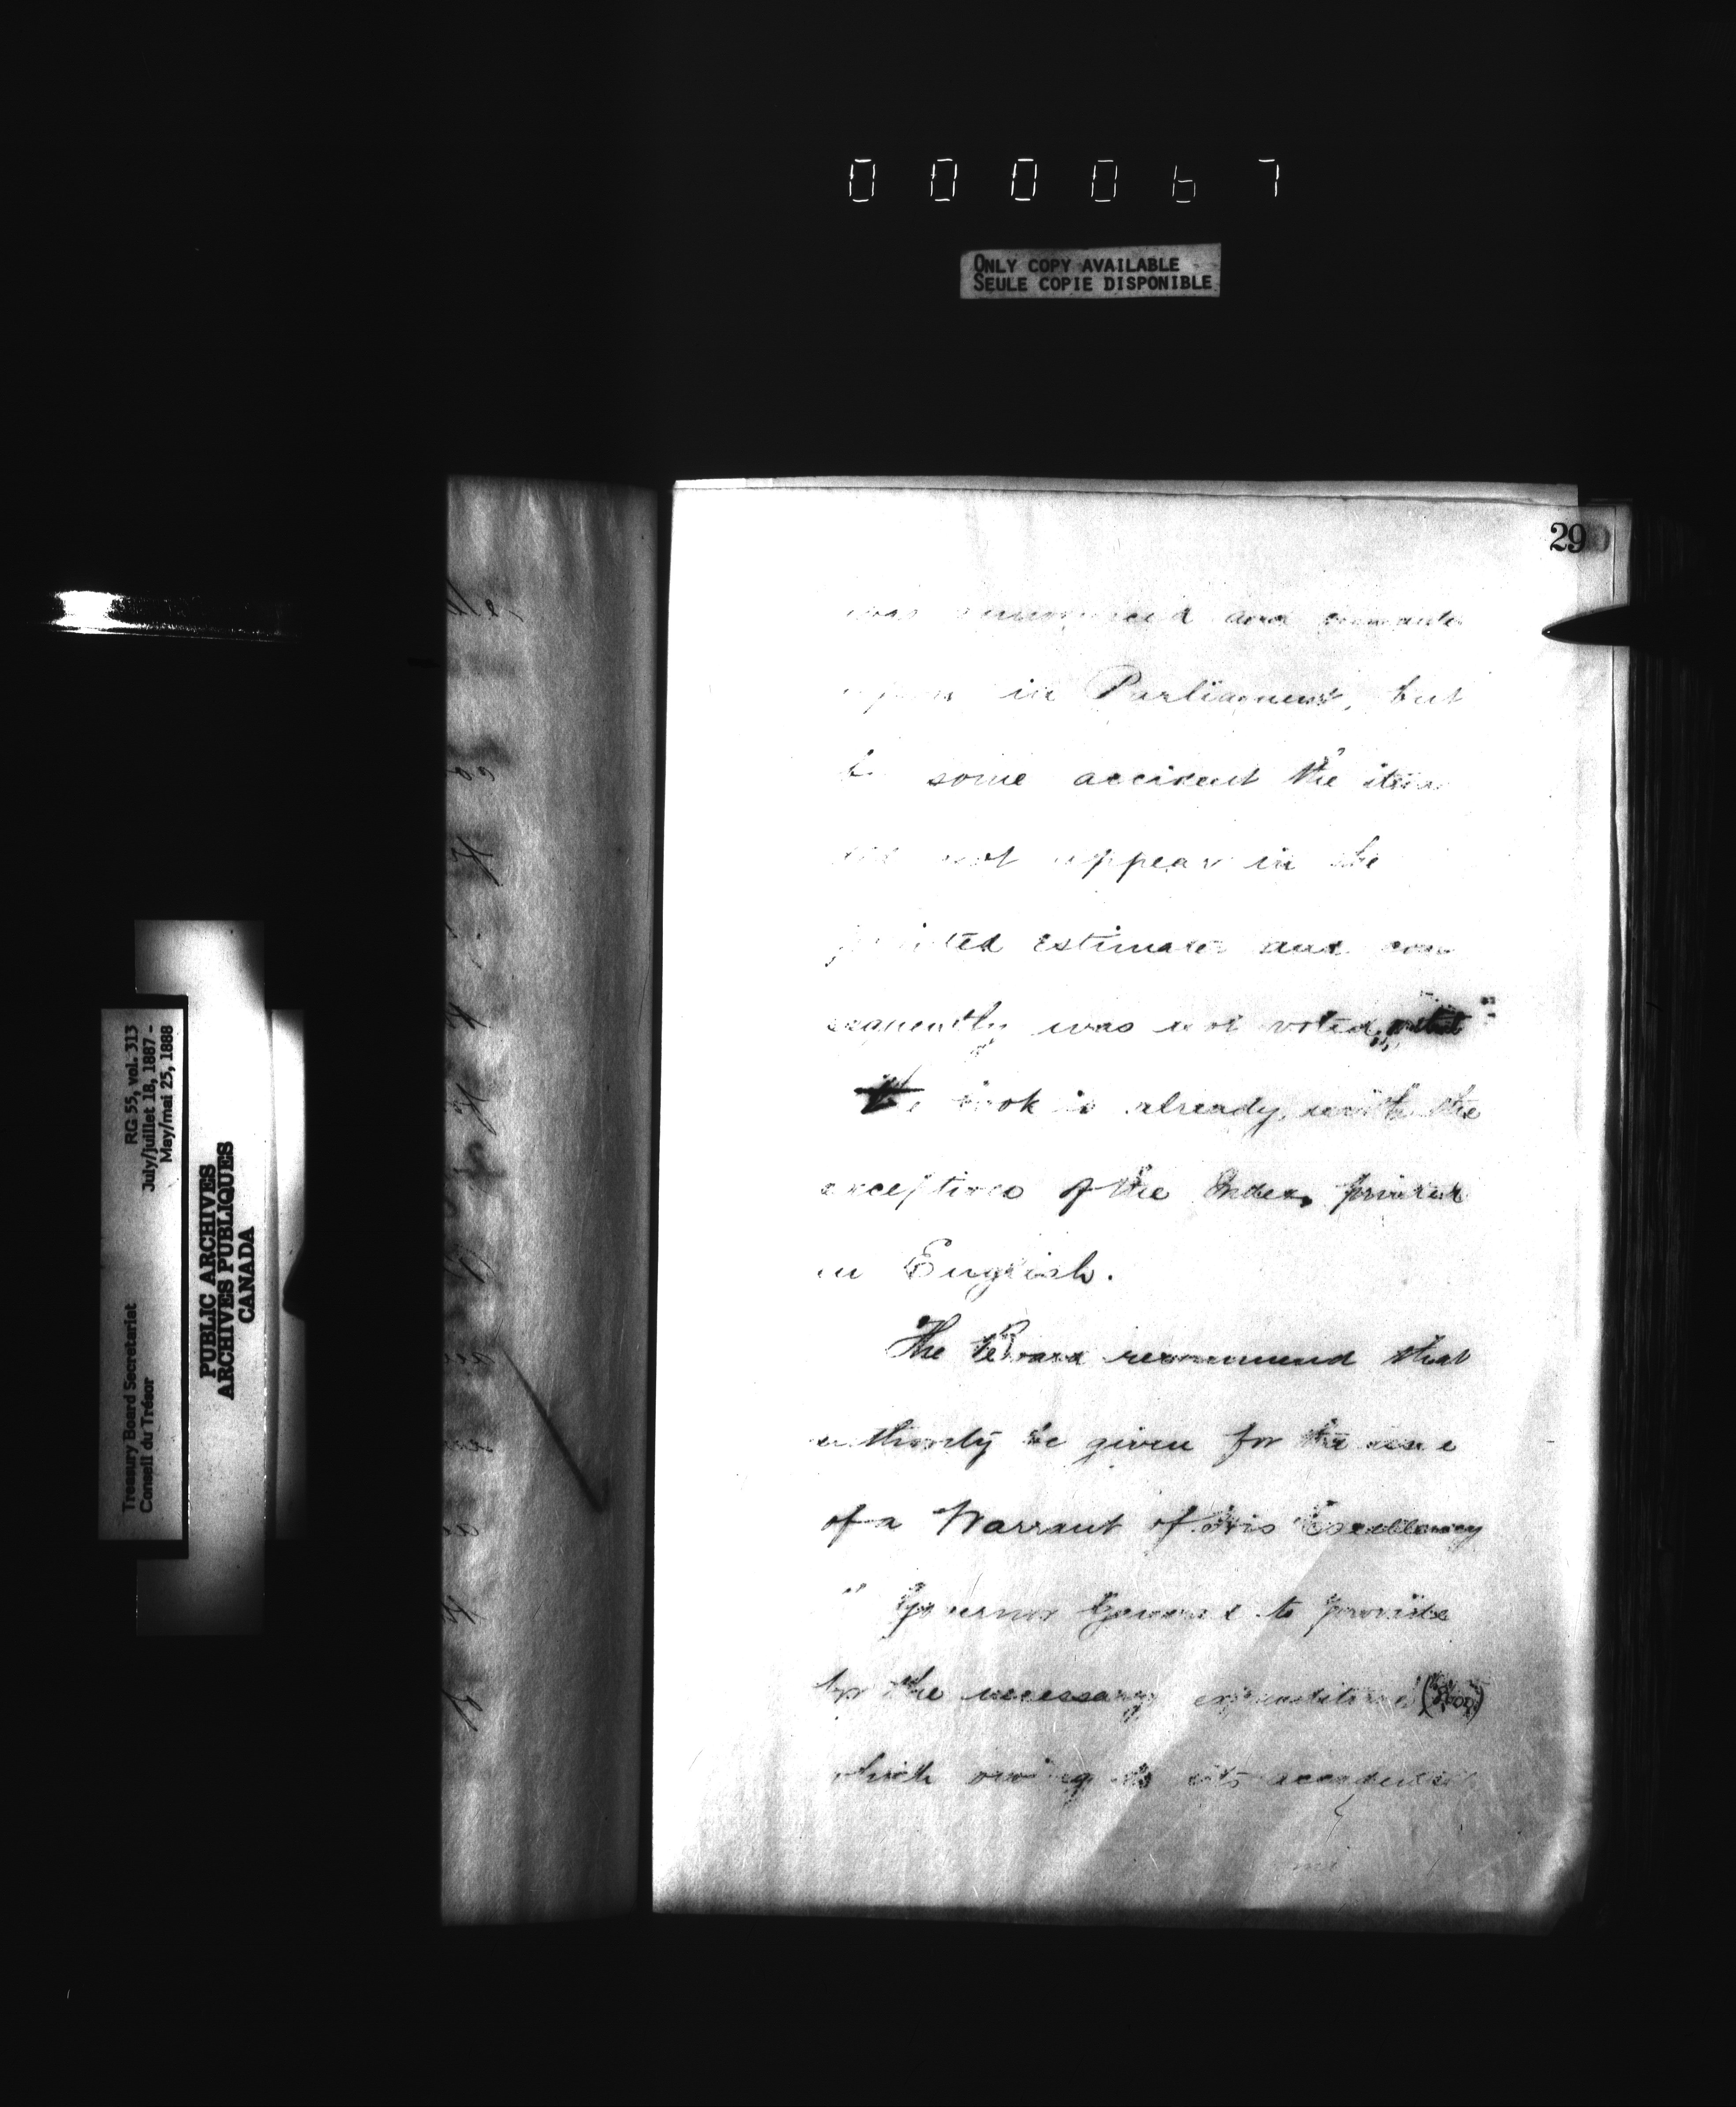 000067
ONLY COPY AVAILABLE
SEULE COPIE DISPONIBLE
29
was announced and
in Parliament, but
some accident the item
did not appear in the
printed estimates and con
sequently was not voted,
The book is already, with the
exception of the Index, printed
in English.
The Board recommend that
authority be given for the
of a Warrant of His Excellency
Governor General to provide
for the necessary expenditure
which owing to its
RG 55, vol. 313
July/juillet 18, 1887 -
May/mai 25, 1888
Treasury Board Secretariat
Conseil du Trésor
PUBLIC ARCHIVES
ARCHIVES PUBLIQUES
CANADA